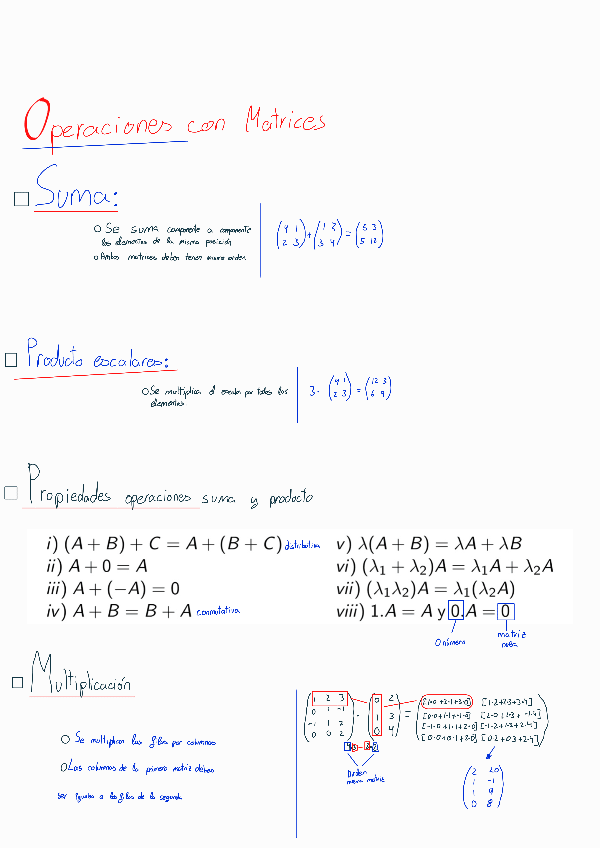 Operaciones con Matrices
Suma:
Se suma componente a componente
los elementos de la misma posición
Ambas matrices deben tener mismo orden
(4 1
2 3) + (1 2
3 9) = (5 3
5 12)
Producto escalares:
Se multiplica el escalar por todos los
elementos
3 · (4 1
2 3) = (12 3
6 9)
Propiedades operaciones suma y producto
i) (A + B) + C = A + (B + C) distributiva
ii) A + 0 = A
iii) A + (−A) = 0
iv) A + B = B + A conmutativa
v) λ(A + B) = λA + λB
vi) (λ₁ + λ₂)A = λ₁A + λ₂A
vii) (λ₁λ₂)A = λ₁(λ₂A)
viii) 1.A = A y 0.A = 0
0 número
matriz
nula
Multiplicación
Se multiplican las filas por columnas
Las columnas de la primera matriz deben
ser iguales a las filas de la segunda
1 2 3
0 1 -1
-1 1 2
0 0 2
0 2
1 3
0 4
=
[1·0+2·1+3·0] [1·2+2·3+3·4]
Orden
nueva matriz
2 20
1 -1
1 9
0 8